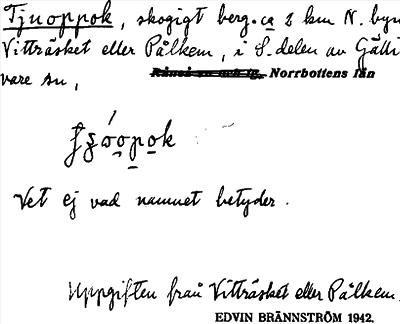 Tjuoppok, skogigt berg. ca 3 km N. byn
Vitträsket eller Pålkem, i S. delen av Gälli
vare sn,
Råneå sn och tg. Norrbottens län
Vet ej vad namnet betyder.
Uppgiften från Vitträsket eller Pålkem.
EDVIN BRÄNNSTRÖM 1942.